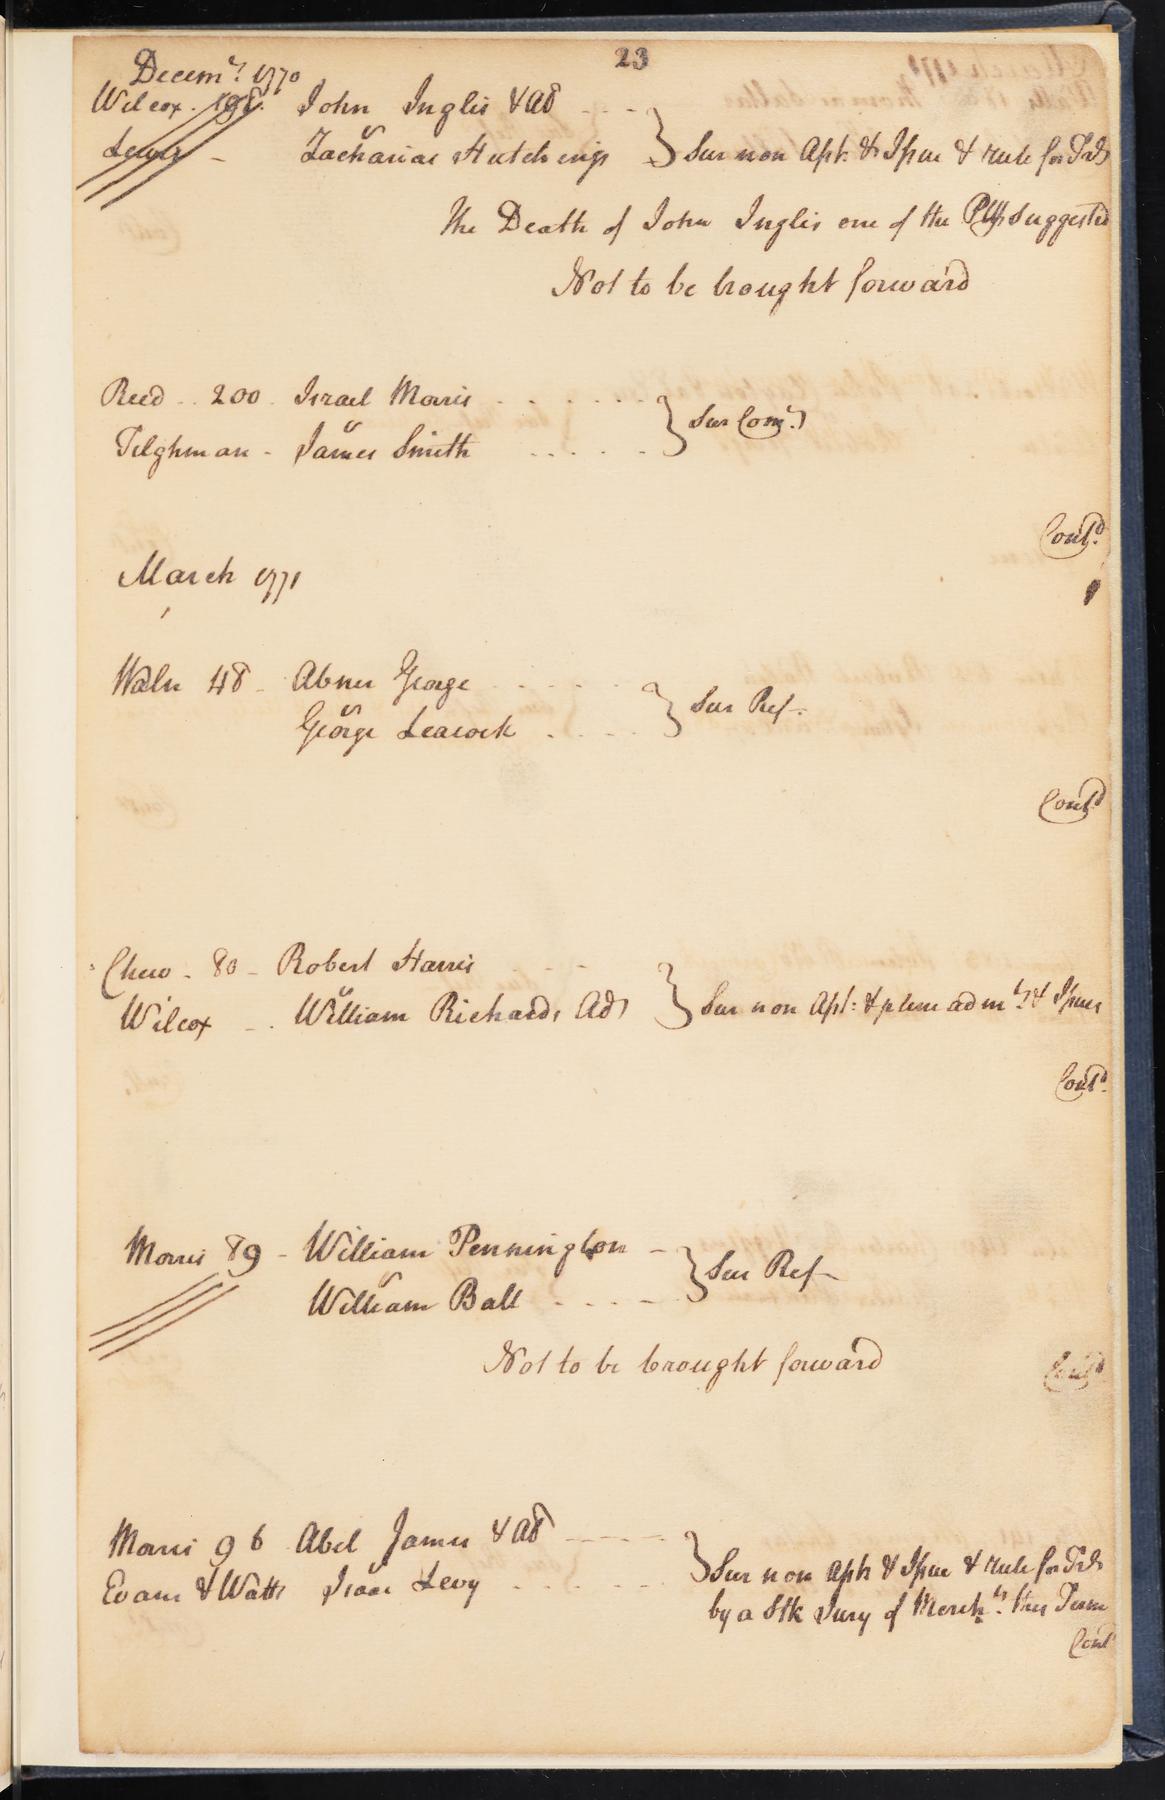 23
Decemr. 1770
Wilcox. 198. John Inglis & als
Lewis - v Zacharias Hutchings } Sur non Aspt. & Issue & rule for Trl
The Death of John Inglis one of the Plffs suggested
Not to be brought forward
Reed .. 200. Israel Morris
Tilghman - v James Smith } Sur Comn.
Contd.
March 1771
Waln 48 - Abner George
v George Leacock } Sur Ref.
Contd
Chew - 80 - Robert Harris
Wilcox - v William Richards Ads } Sur non Aspt: & plene admt. & Issues
Contd.
Morris 89 - William Pennington -
v William Ball } Sur Ref -
Not to be brought forward
Contd
Morris 96 Abel James & als
Evans & Watts v Isaac Levy } Sur non Aspt & Issue & rule for Trl
by a Stk Jury of Merchts. this Term
Cont